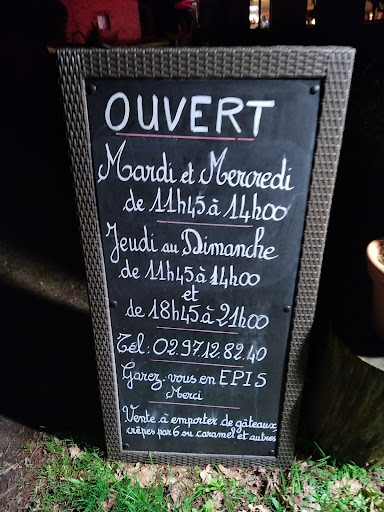 OUVERT
Mardi et Mercredi
de 11h45 à 14h00
Jeudi au Dimanche
de 11h45 à 14h00
et
de 18h45 à 21h00
Tél : 02.97.12.82.40
Garez-vous en EPIS
Merci
Vente à emporter de gâteaux
crêpes par 6 ou caramel et autres